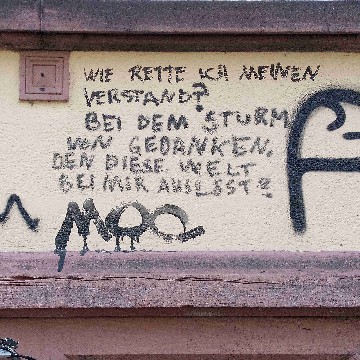 WIE RETTE ICH MEINEN
VERSTAND?
BEI DEM STURM
VON GEDANKEN,
DEN DIESE WELT
BEI MIR AUSLÖST?